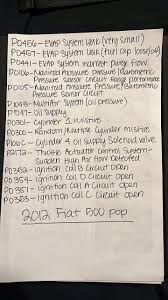 P0456 - EVAP System Leak (very small)
P0457 - EVAP System Leak (fuel cap loose/off)
P0441 - EVAP System incorrect purge flow
P0106 - Manifold Absolute Pressure / Barometric
Pressure Sensor Circuit Range performance
P0105 - Manifold Absolute Pressure / Barometric
Pressure Sensor Circuit
P1048 - MultiAir System (oil pressure)
P0197 - Oil supply
P0301 - Cylinder 1 misfire
P0300 - Random/Multiple Cylinder misfire
P106C - Cylinder 4 oil supply Solenoid valve
P2172 - Throttle Actuator Control System-
Sudden High Air flow Detected
P0352 - Ignition Coil B Circuit open
P0354 - Ignition Coil D Circuit open
P0351 - Ignition Coil A Circuit open
P0353 - Ignition Coil C Circuit open
2012 Fiat 500 pop